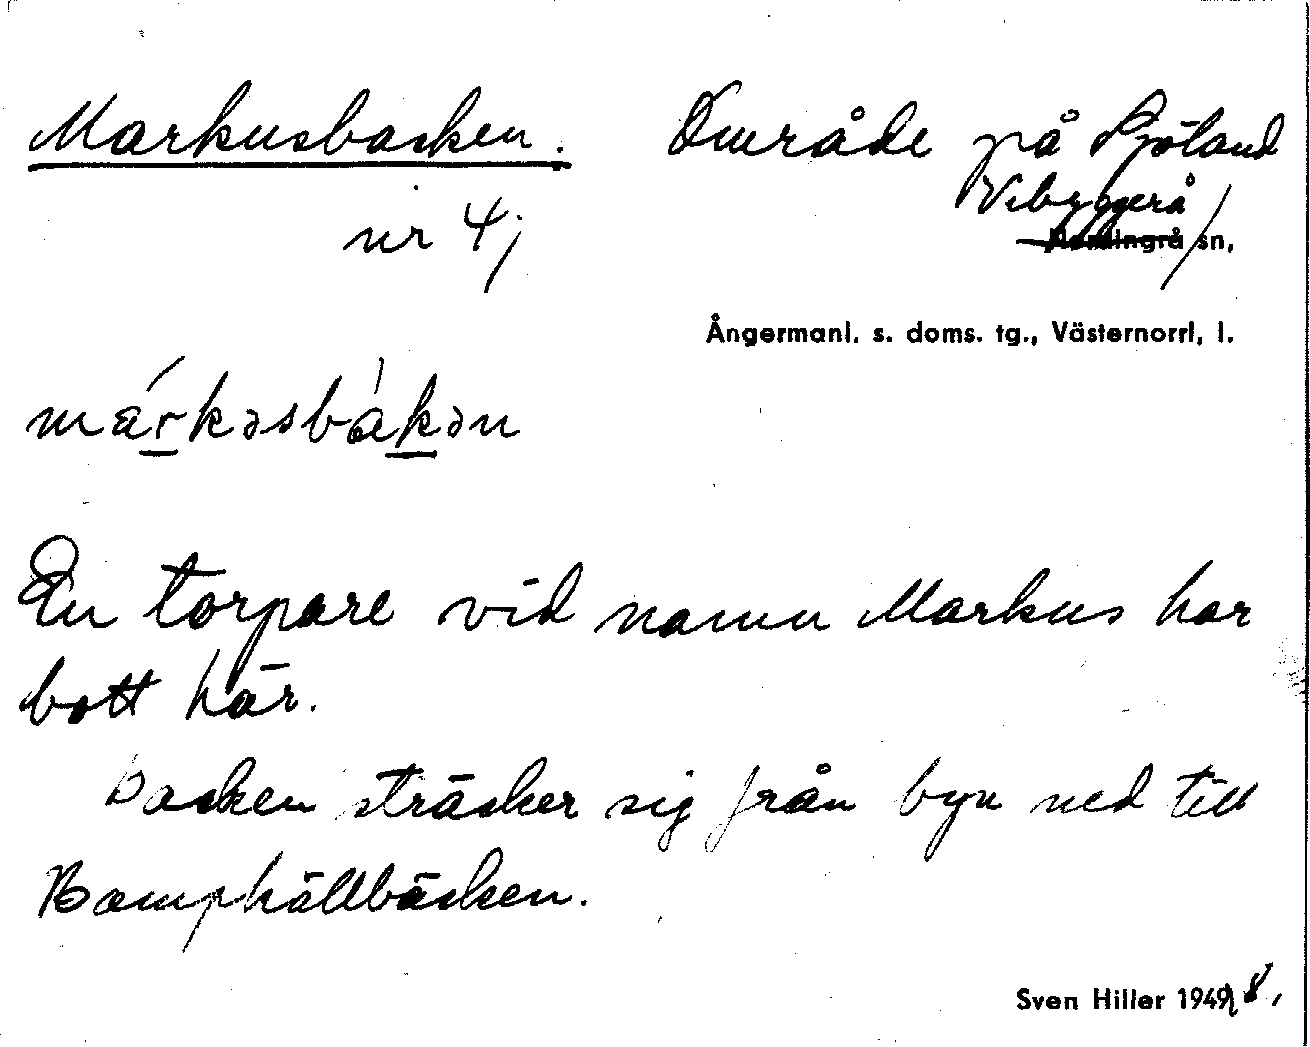 Markusbacken. Område på Sjöland
nr 4; Vibyggerå
Nordingrå sn,
Ångermanl. s. doms. tg., Västernorrl, l.
márkəsbàkən
En torpare vid namn Markus har
bott här.
Backen sträcker sig från byn ned till
Bamphällbäcken.
Sven Hiller 1949 8.